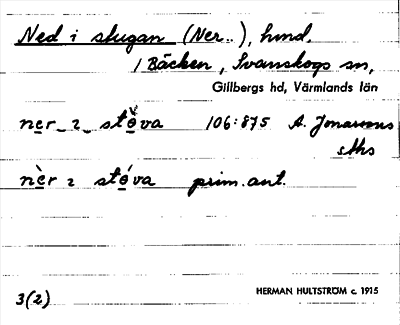 Ned i stugan (Ner..), hmd.
i Bäcken, Svanskogs sn,
Gillbergs hd, Värmlands län
ner_ı_ stova 106:875 A. Jonasons
sths
nèr ı stóva prim. ant.
3(2) HERMAN HULTSTRÖM c. 1915